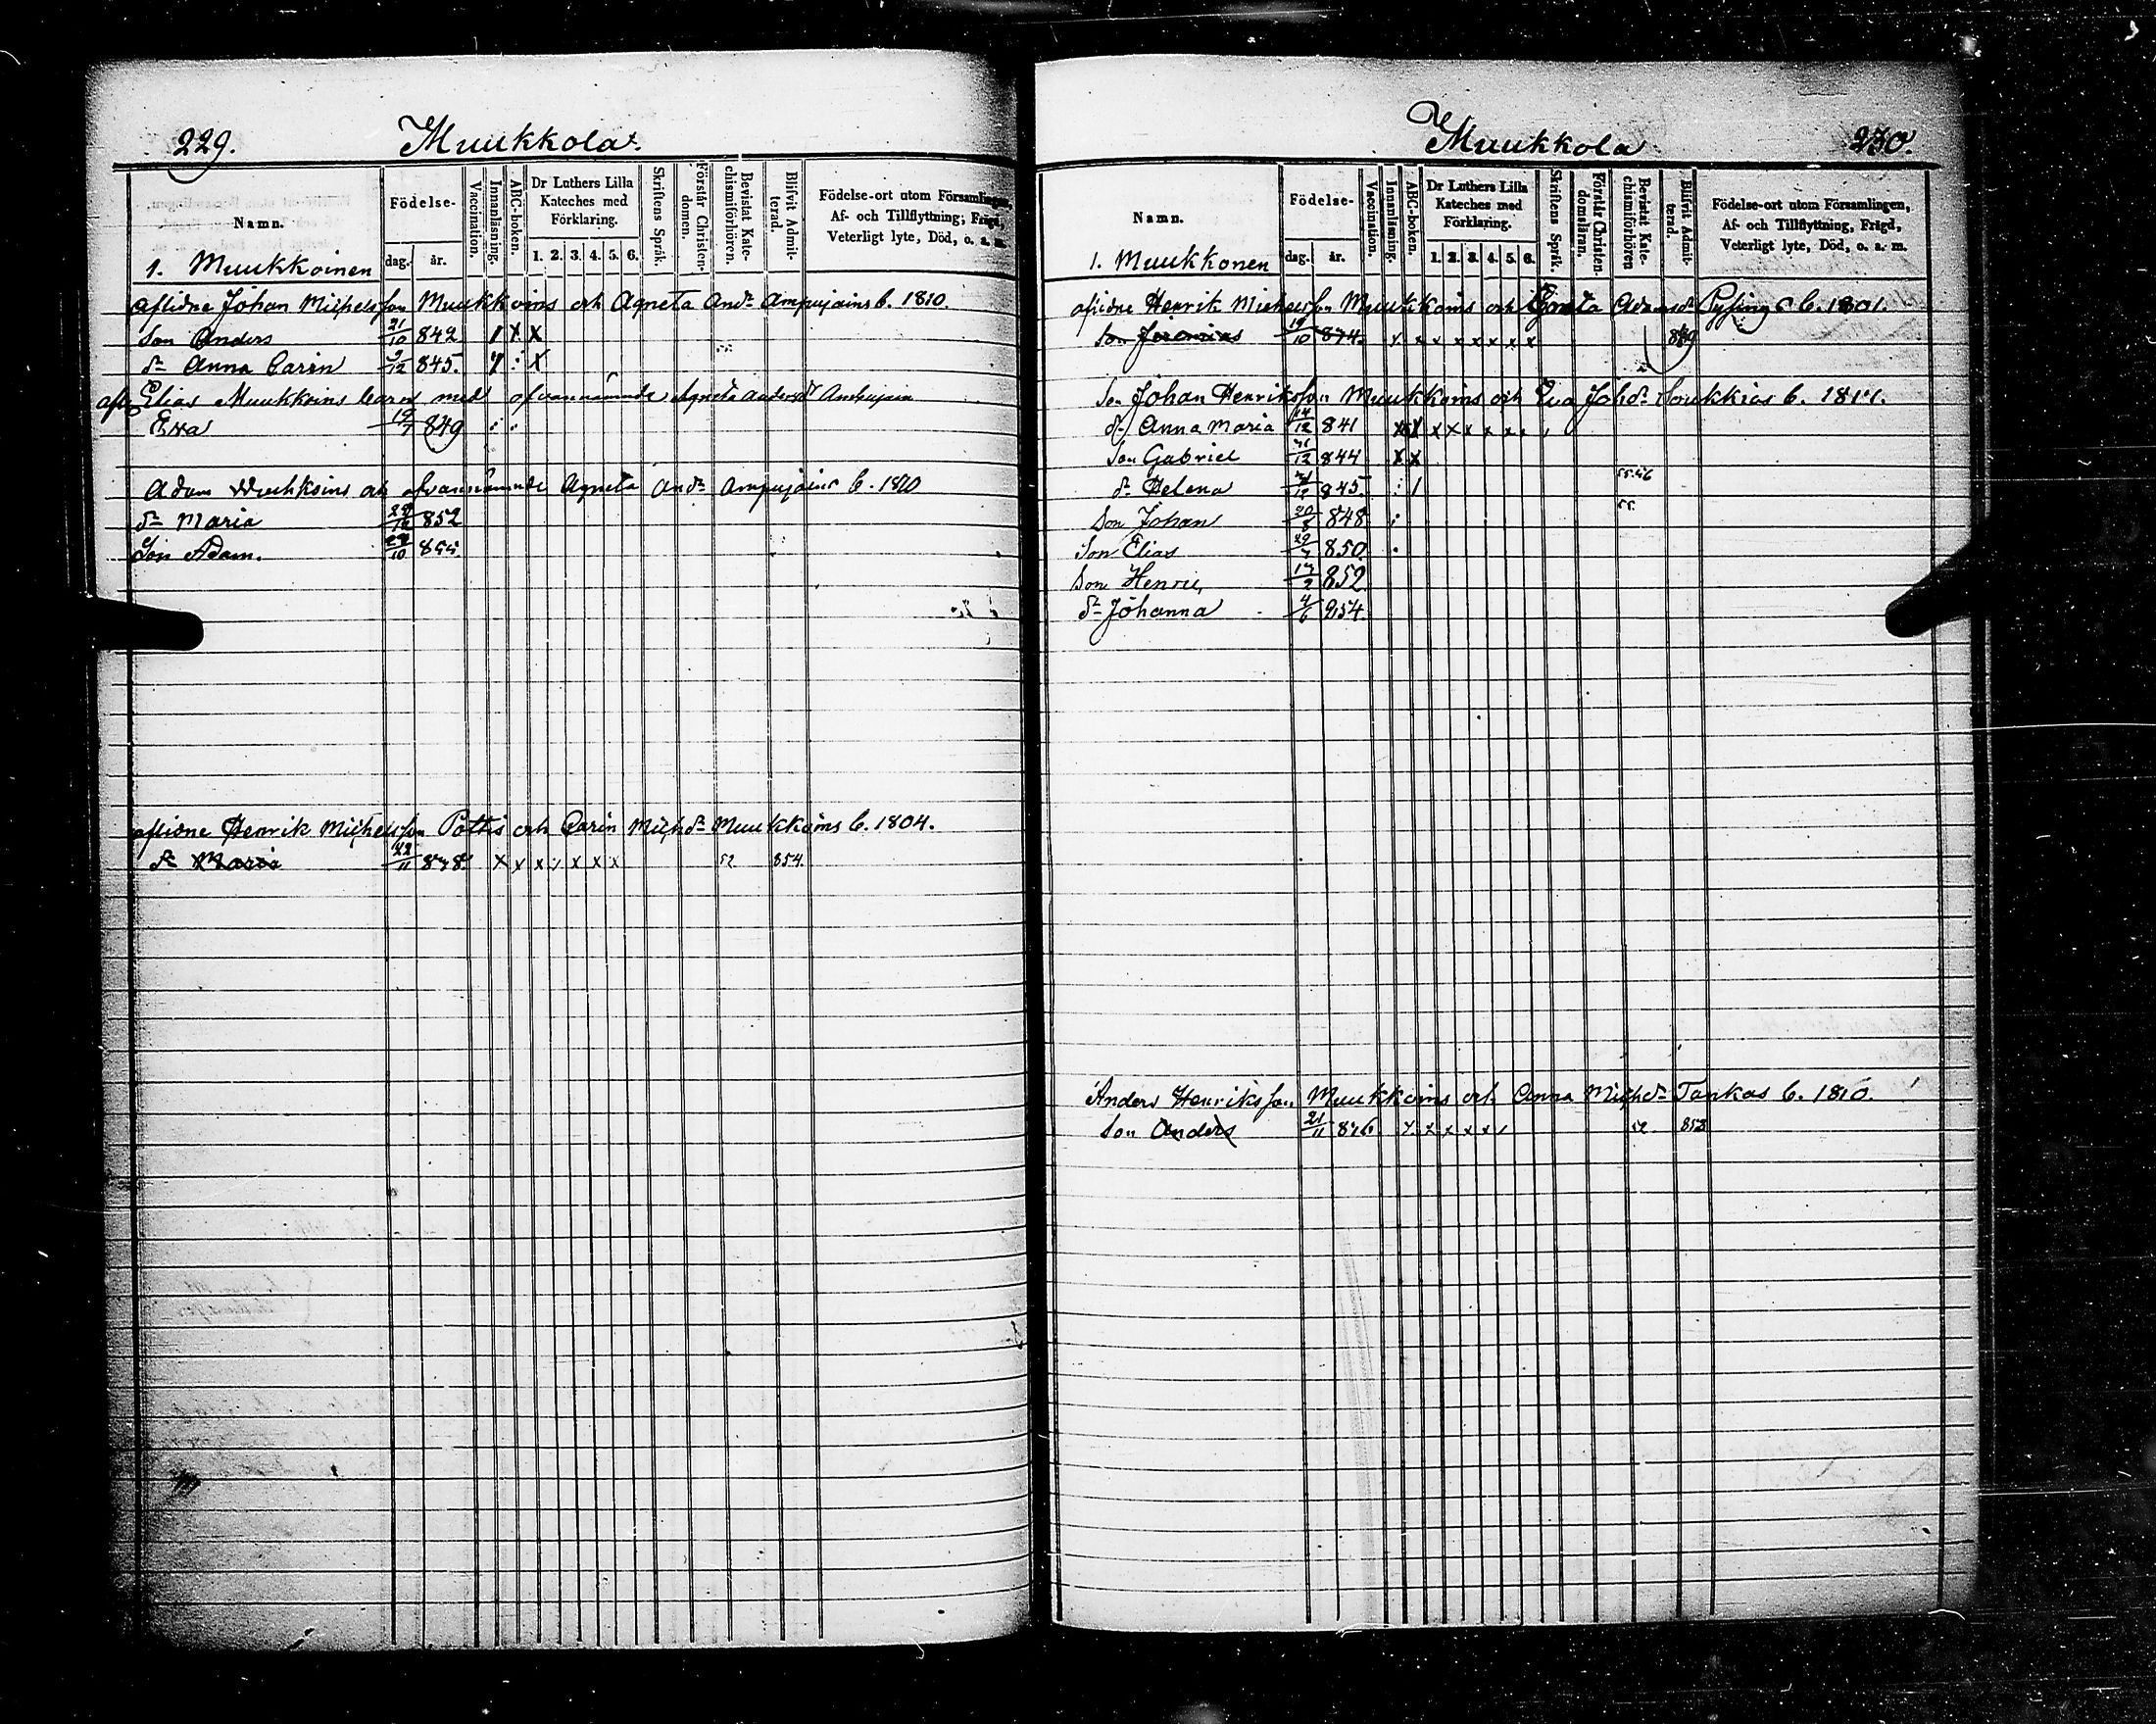 229.
Muukkola.
Namn.
Födelse-
dag.
år.
Vaccination.
Innanläsning.
ABC-boken.
Dr Luthers Lilla
Kateches med
Förklaring.
1. 2. 3. 4. 5. 6.
Skriftens Språk.
Förstår Christen-
domen.
Bevistat Kate-
chismiförhören.
Blifvit Admit-
terad.
Födelse-ort utom Församlingen,
Af- och Tillflyttning, Frägd,
Veterligt lyte, Död, o. s. m.
1. Muukkoinen
aflidne Johan Michelsson Muukkoins och Agneta Andr Ampujains b. 1810.
Son Anders 21/10 842 1 X X
dr Anna Carin 9/12 845. X
Elias Muukkoins barn med ofvannämnde Agneta Andersdr Ampujain
Ewa 19/7 849
Adam och ofvannämnde Agneta Andr Ampujains b. 1810
dr Maria 852
Son Adam.
aflidne Henrik Michelsson Pottis och Carin Michdr Muukkoins b. 1804.
dr Maria 22/11 x x x x x x x 52 854.
Muukkola
230.
Namn.
Födelse-
dag.
år.
Vaccination.
Innanläsning.
ABC-boken.
Dr Luthers Lilla
Kateches med
Förklaring.
1. 2. 3. 4. 5. 6.
Skriftens Språk.
Förstår Christen-
domsläran.
Bevistat Kate-
chismiförhören
Blifvit Admit-
terad.
Födelse-ort utom Församlingen,
Af- och Tillflyttning, Frägd,
Veterligt lyte, Död, o. s. m.
1. Muukkonen
aflidne Henrik Michelsson Muukkoins och Adamsdr b. 1801.
Son Jeremias 19/10 x x x x x x x x 849
Son Johan Henriksson Muukkoins och Eva Johdr Loukkias b.
dr Anna Maria 14/12 841 x x x x x x
Son Gabriel 844 X X
55.56
dr Helena 845.
55.
Son Johan 848
Son Elias 29/7 850
Son Henric 852
dr Johanna 4/6 854.
Anders Henriksson Muukkoins och Anna Michdr Tankas b. 1810.
Son Anders 21/11 x x x x x 52. 853